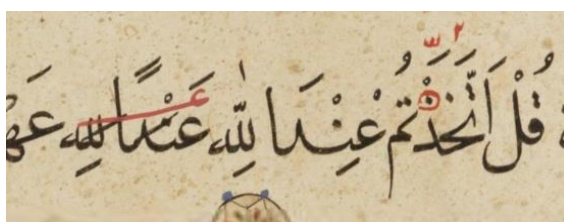 قُلْ اَتَّخَذْتُمْ عِنْدَ اللّٰهِ عَنْدًا لله